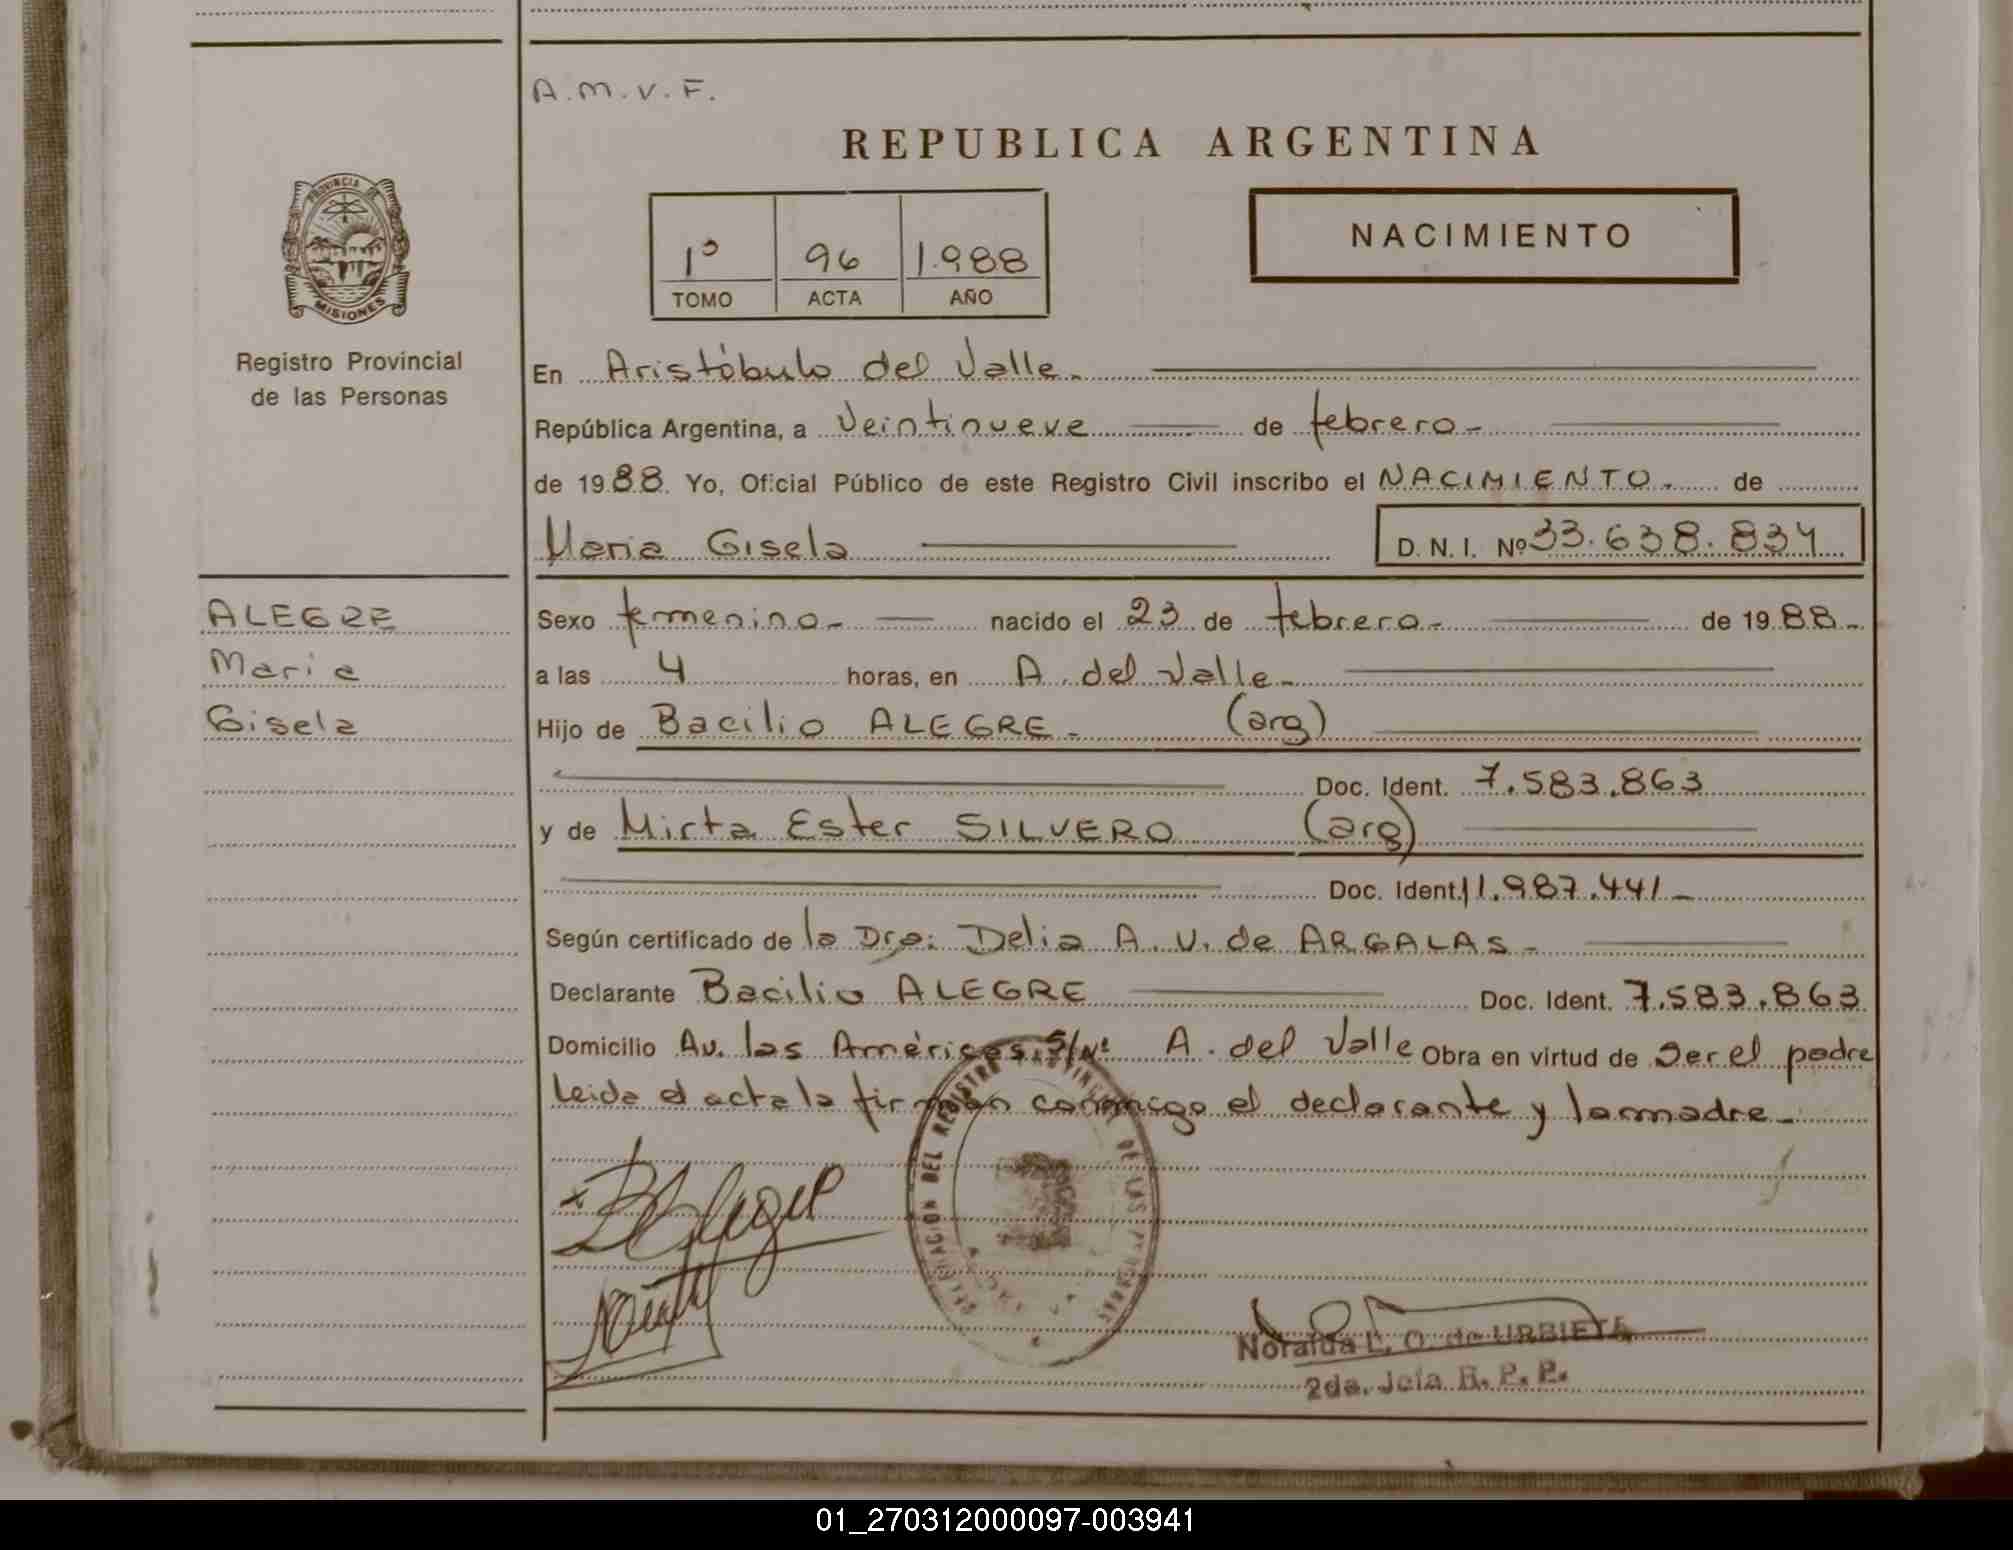 A.M.V.F.
REPUBLICA ARGENTINA
PROVINCIA DE
MISIONES
Registro Provincial
de las Personas
1º 96 1.988
TOMO ACTA AÑO
NACIMIENTO
En Aristóbulo del Valle.
República Argentina, a Veintinueve de febrero-
de 1988. Yo, Oficial Público de este Registro Civil inscribo el NACIMIENTO. de
Maria Gisela D. N. I. Nº 33.638.834
ALEGRE
Maria
Gisela
Sexo femenino- nacido el 23 de febrero- de 1988-
a las 4 horas, en A. del Valle-
Hijo de Bacilio ALEGRE- (arg)
Doc. Ident. 7.583.863
y de Mirta Ester SILVERO (arg)
Doc. Ident. 11.987.441-
Según certificado de la Dra: Delia A. V. de ARGALAS-
Declarante Bacilio ALEGRE Doc. Ident. 7.583.863
Domicilio Av. las Américas S/Nº A. del Valle Obra en virtud de ser el padre
leida el acta la firman conmigo el declarante y la madre-
DELEGACION DEL REGISTRO PROVINCIAL DE LAS PERSONAS
Noraida L. O. de URBIETA
2da. Jefa R. P. P.
01_270312000097-003941